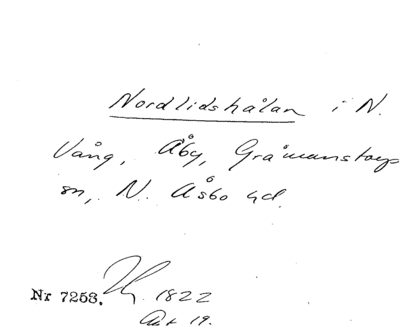 Nordlidshålan i N.
Vång, Åby, Gråmanstorps
sn, N. Åsbo hd.
Nr 7253. 1822
Akt 19.